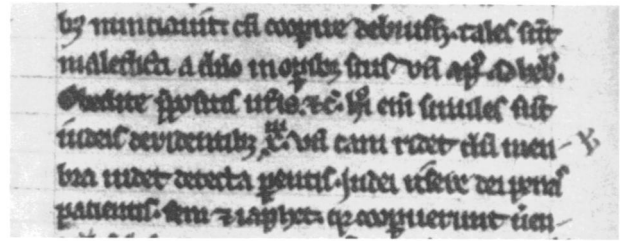 bȝ nunciauit: cū cooꝑire debuissȝ. tales sūt
maledicti a dño in oꝑibȝ suis. vñ apłs ad heb.
Obedite p̄positis uris. ⁊c̄. hi eni similes sūt
iudeis deridentibȝ vñ cam ridet dū mem-
bra uidet detecta ꝑentis. iudei risere dei penas
patientis. sem ⁊ iaphet. qr cooꝑuerunt